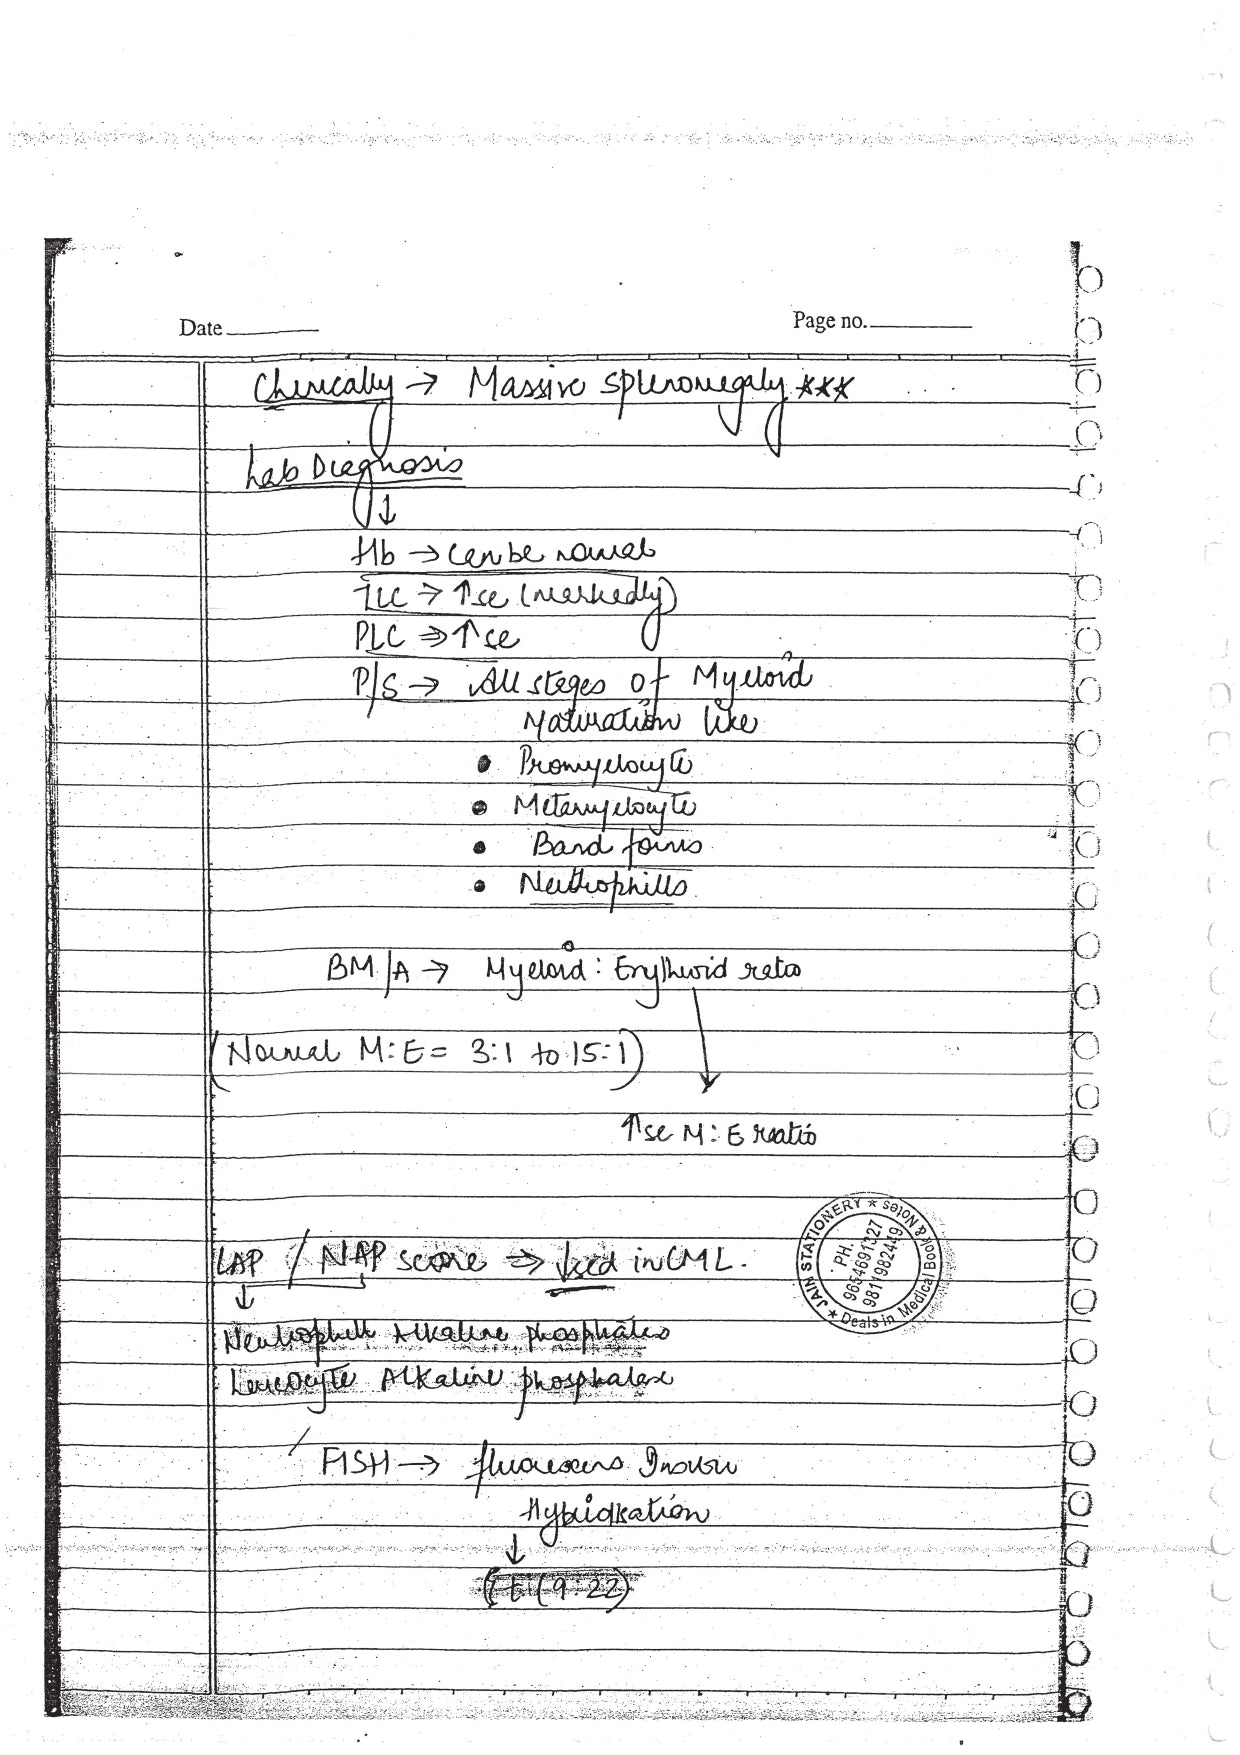 Date
Page no.
Clinically → Massive splenomegaly ***
Lab Diagnosis
↓
Hb → can be normal
TLC → ↑se (markedly)
PLC ⇒ ↑se
P/S → All stages of Myeloid
Maturation like
• Promyelocyte
• Metamyelocyte
• Band forms
• Neutrophills
BM/A → Myeloid : Erythroid ratio
(Normal M:E = 3:1 to 15:1)
↑se M:E ratio
LAP / NAP score ⇒ Used in CML.
↓
Neutrophill Alkaline phosphates
Leucocyte Alkaline phosphatase
FISH →
Hybridisation
↓
(t (9:22)
JAIN STATIONERY ★ Deals in Medical Book & Notes ★
PH.
9654691327
9811982449